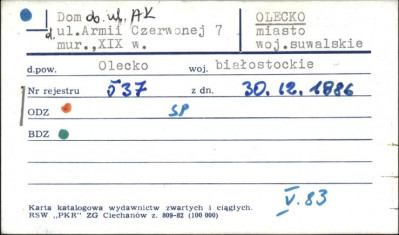 Dom ob. ul. AK
d. ul.Armii Czerwonej 7
mur.,XIX w.
OLECKO
miasto
woj.suwalskie
d.pow. Olecko woj. białostockie
Nr rejestru 537 z dn. 30.12.1986
ODZ SP
BDZ
V.83
Karta katalogowa wydawnictw zwartych i ciągłych.
RSW „PKR" ZG Ciechanów z. 809-82 (100 000)